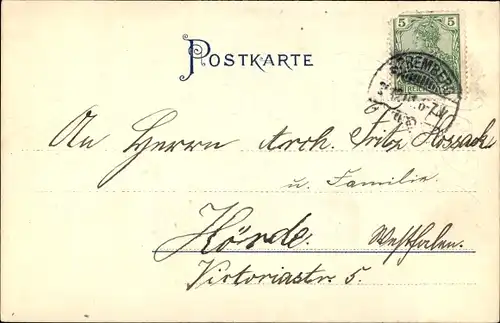 5 5
POSTKARTE
SPREMBERG
An Herrn Arch. Fritz Kossack
u. Familie.
Hörde. Westfalen.
Victoriastr. 5.